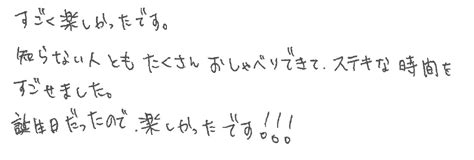 すごく楽しかったです。
知らない人ともたくさんおしゃべりできて、ステキな時間を
すごせました。
誕生日だったので、楽しかったです!!!